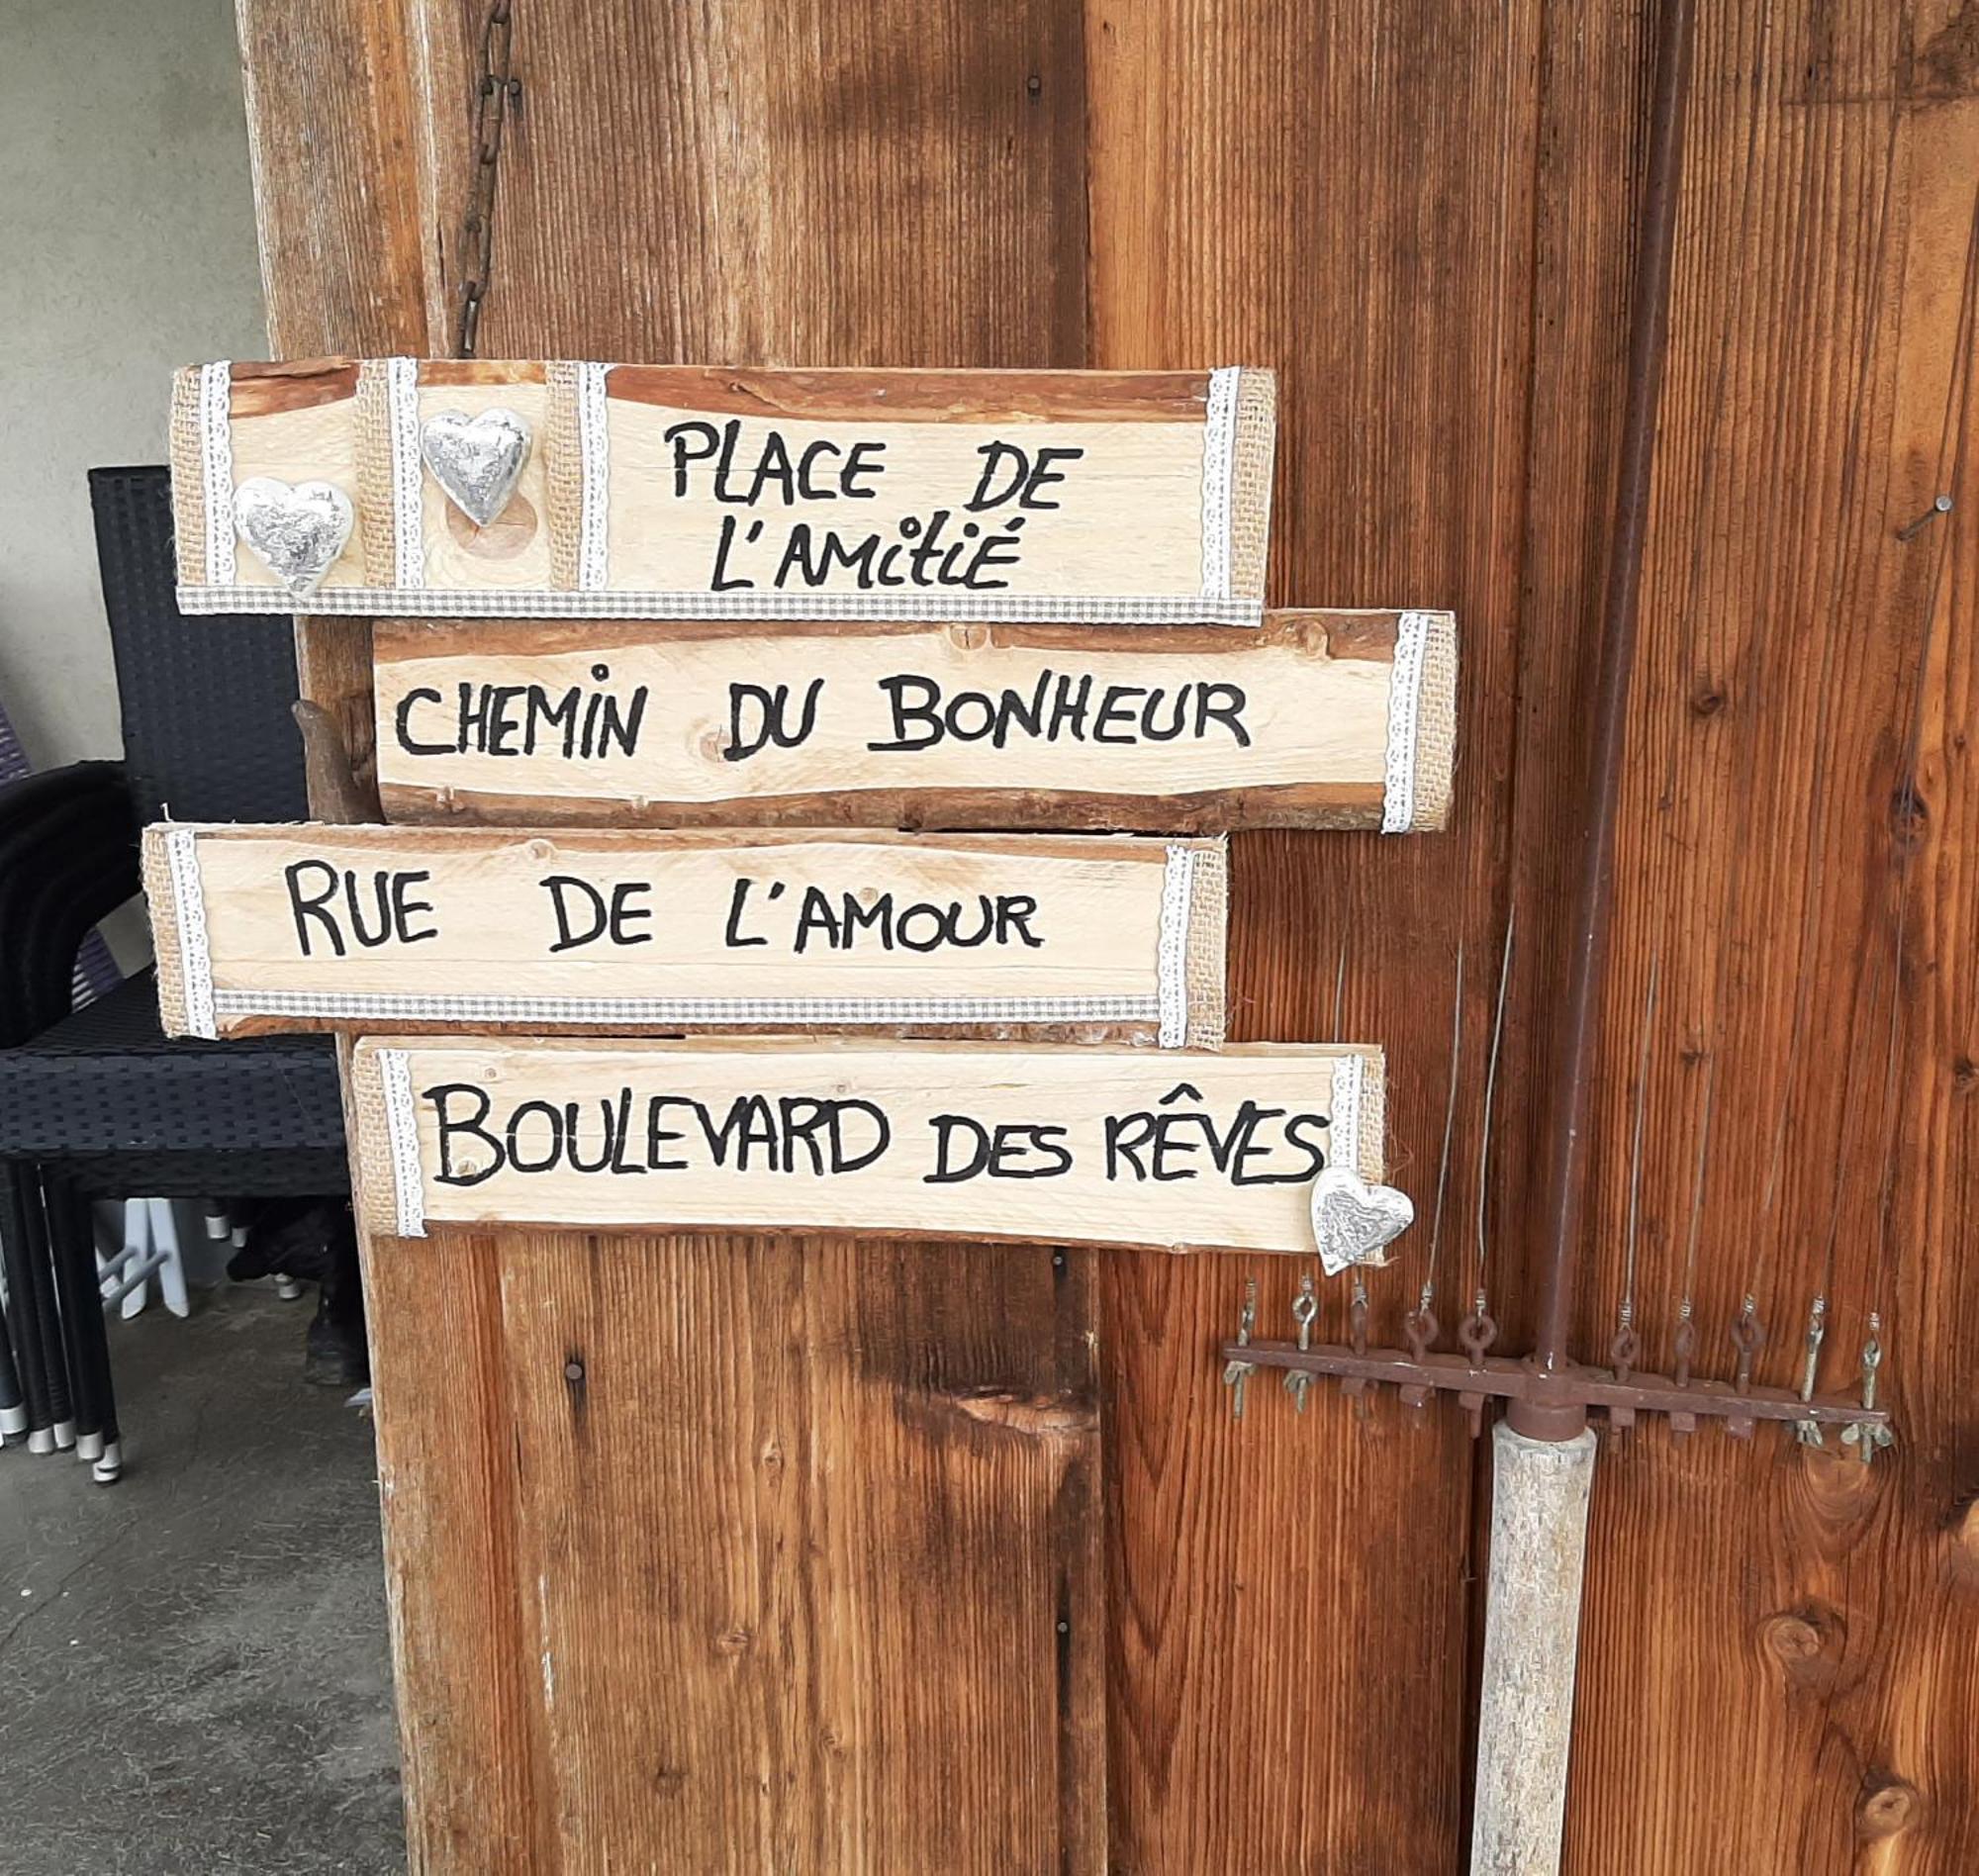 PLACE DE
L'AMitiÉ
CHEMiN DU BONHEUR
RUE DE L'AMOUR
BOULEVARD DES RÊVES